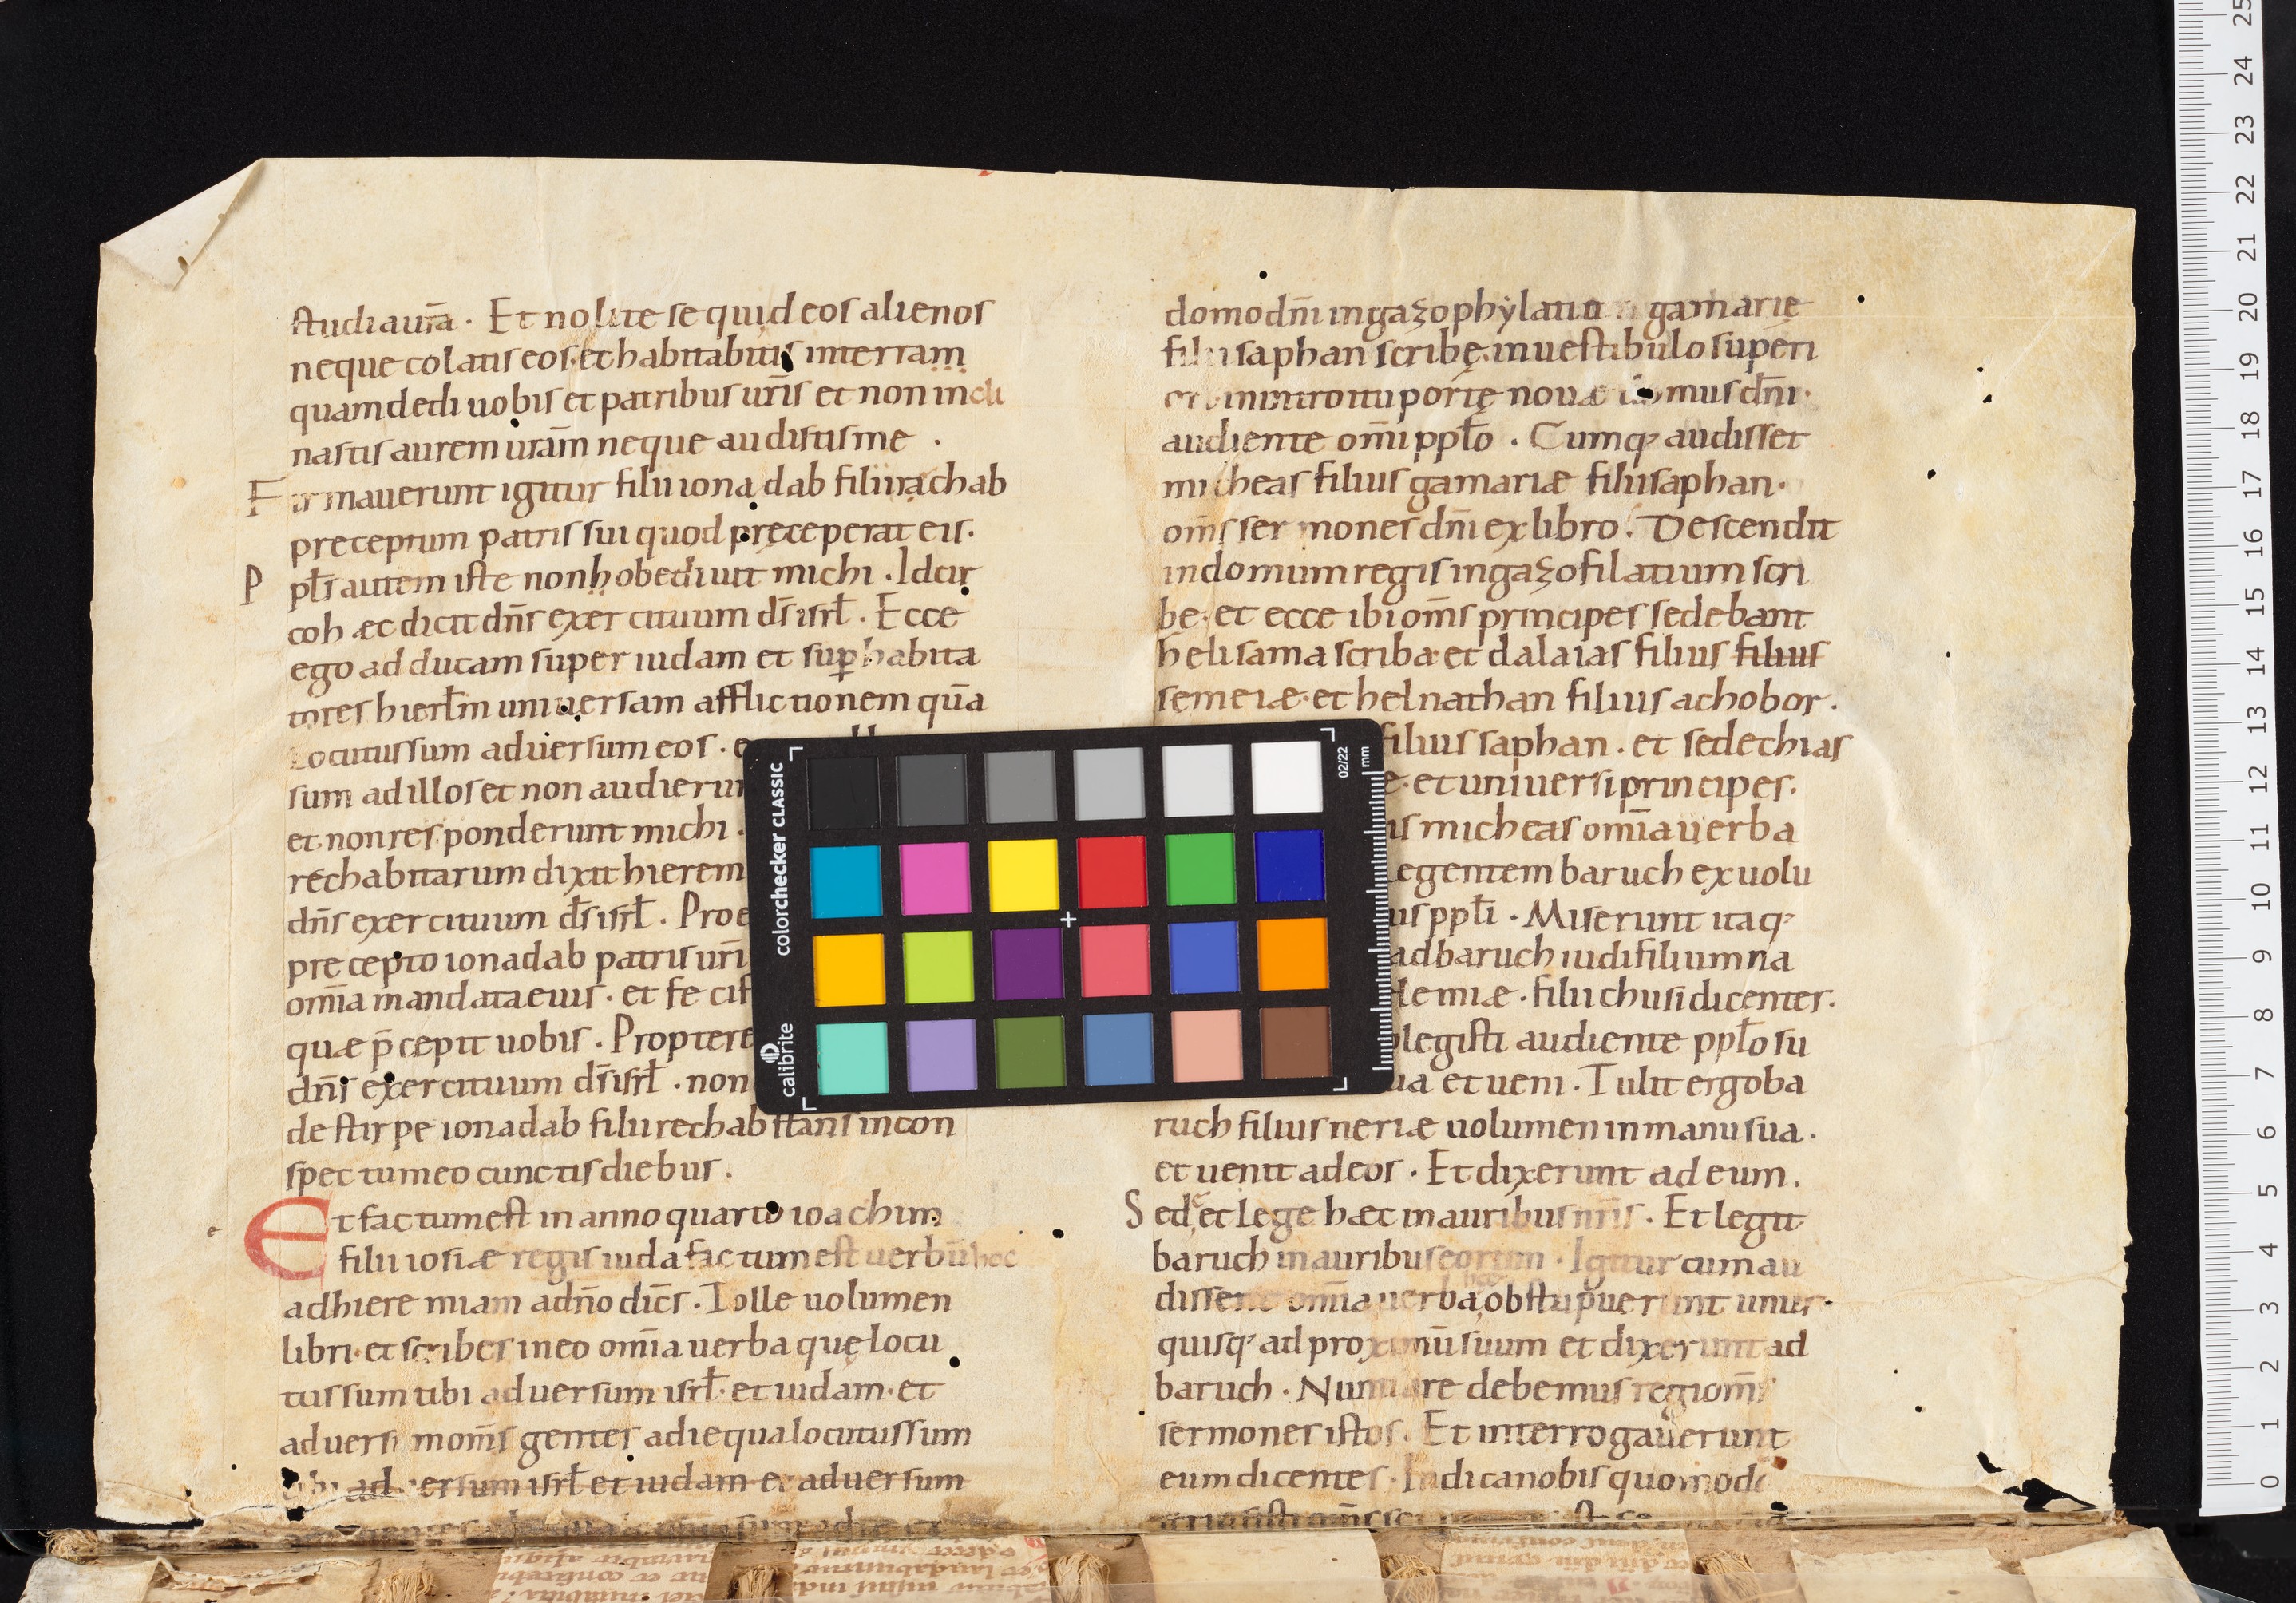 studia ur̄a. Et nolite sequi deos alienos
neque colatis eos. et habitabitis in terram
quam dedi uobis et patribus ur̄is et non incli
nastis aurem urām neque audistis me.
Firmauerunt igitur filii ionadab filii rachab
preceptum patris sui quod pręceperat eis.
P ppl̄s autem iste non hobediuit michi. Idcir
co hæc dicit dn̄s exercituum d̄s isrl̄. Ecce
ego adducam super iudam et sup habita
tores hierl̄m uniuersam afflictionem quā
Locutus sum aduersum eos. e
sum ad illos et non audierun
et non responderunt michi.
rechabitarum dixit hierem
dn̄s exercituum d̄s isrl̄. Proe
precepto ionadab patris urī
om̄ia mandata eius. et fecis
quæ p̄cepit uobis. Proptere
dn̄s exercituum d̄s isrl̄. non
de stirpe ionadab filii rechab stans in con
spectu meo cunctis diebus.
Et factum est in anno quarto ioachim
filii iosiæ regis iuda factum est uerbū hoc
ad hieremiam ad n̄o dic̄s. Tolle uolumen
libri. et scribes in eo om̄ia uerba quę locu
tus sum tibi aduersum isrl̄. et iudam. et
aduersum om̄s gentes a die qua locutus sum
tibi aduersum isrl̄ et iudam et aduersum
domo dn̄i in gazophylatio gamarię
filii saphan scribę. in uestibulo superi
in introitu portę nouæ domus dn̄i.
audiente om̄i ppl̄o. Cumq; audisset
micheas filius gamariæ filii saphan.
om̄s sermones dn̄i ex libro. Descendit
in domum regis in gazofilatium scri
be. et ecce ibi om̄s principes sedebant
helisama scriba. et dalaias filius filius
semeiæ. et helnathan filius achobor.
filius saphan. et sedechias
e. et uniuersi principes.
is micheas om̄ia uerba
legentem baruch ex uolu
us ppl̄i. Miserunt itaq;
ad baruch iudi filium na
lemiæ. filii chusi dicentes.
legisti audiente ppl̄o su
ua et ueni. Tulit ergo ba
ruch filius neriæ uolumen in manu sua.
et uenit ad eos. Et dixerunt ad eum.
Sede et Lege hæc in auribus nr̄is. Et legit
baruch in auribus eorum. Igitur cum au
dissent om̄ia uerba obstupuerunt unus
quisq; ad proximū suum et dixerunt ad
baruch. Nuntiare debemus regi om̄s
sermones istos. Et interrogauerunt
eum dicentes. Indica nobis quomodo
colorchecker CLASSIC
calibrite
02/22
mm
25
24
23
22
21
20
19
18
17
16
15
14
13
12
11
10
9
8
7
6
5
4
3
2
1
0